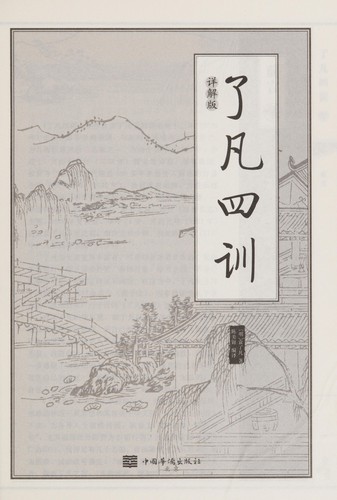 了凡四训
详解版
中国华侨出版社
北京